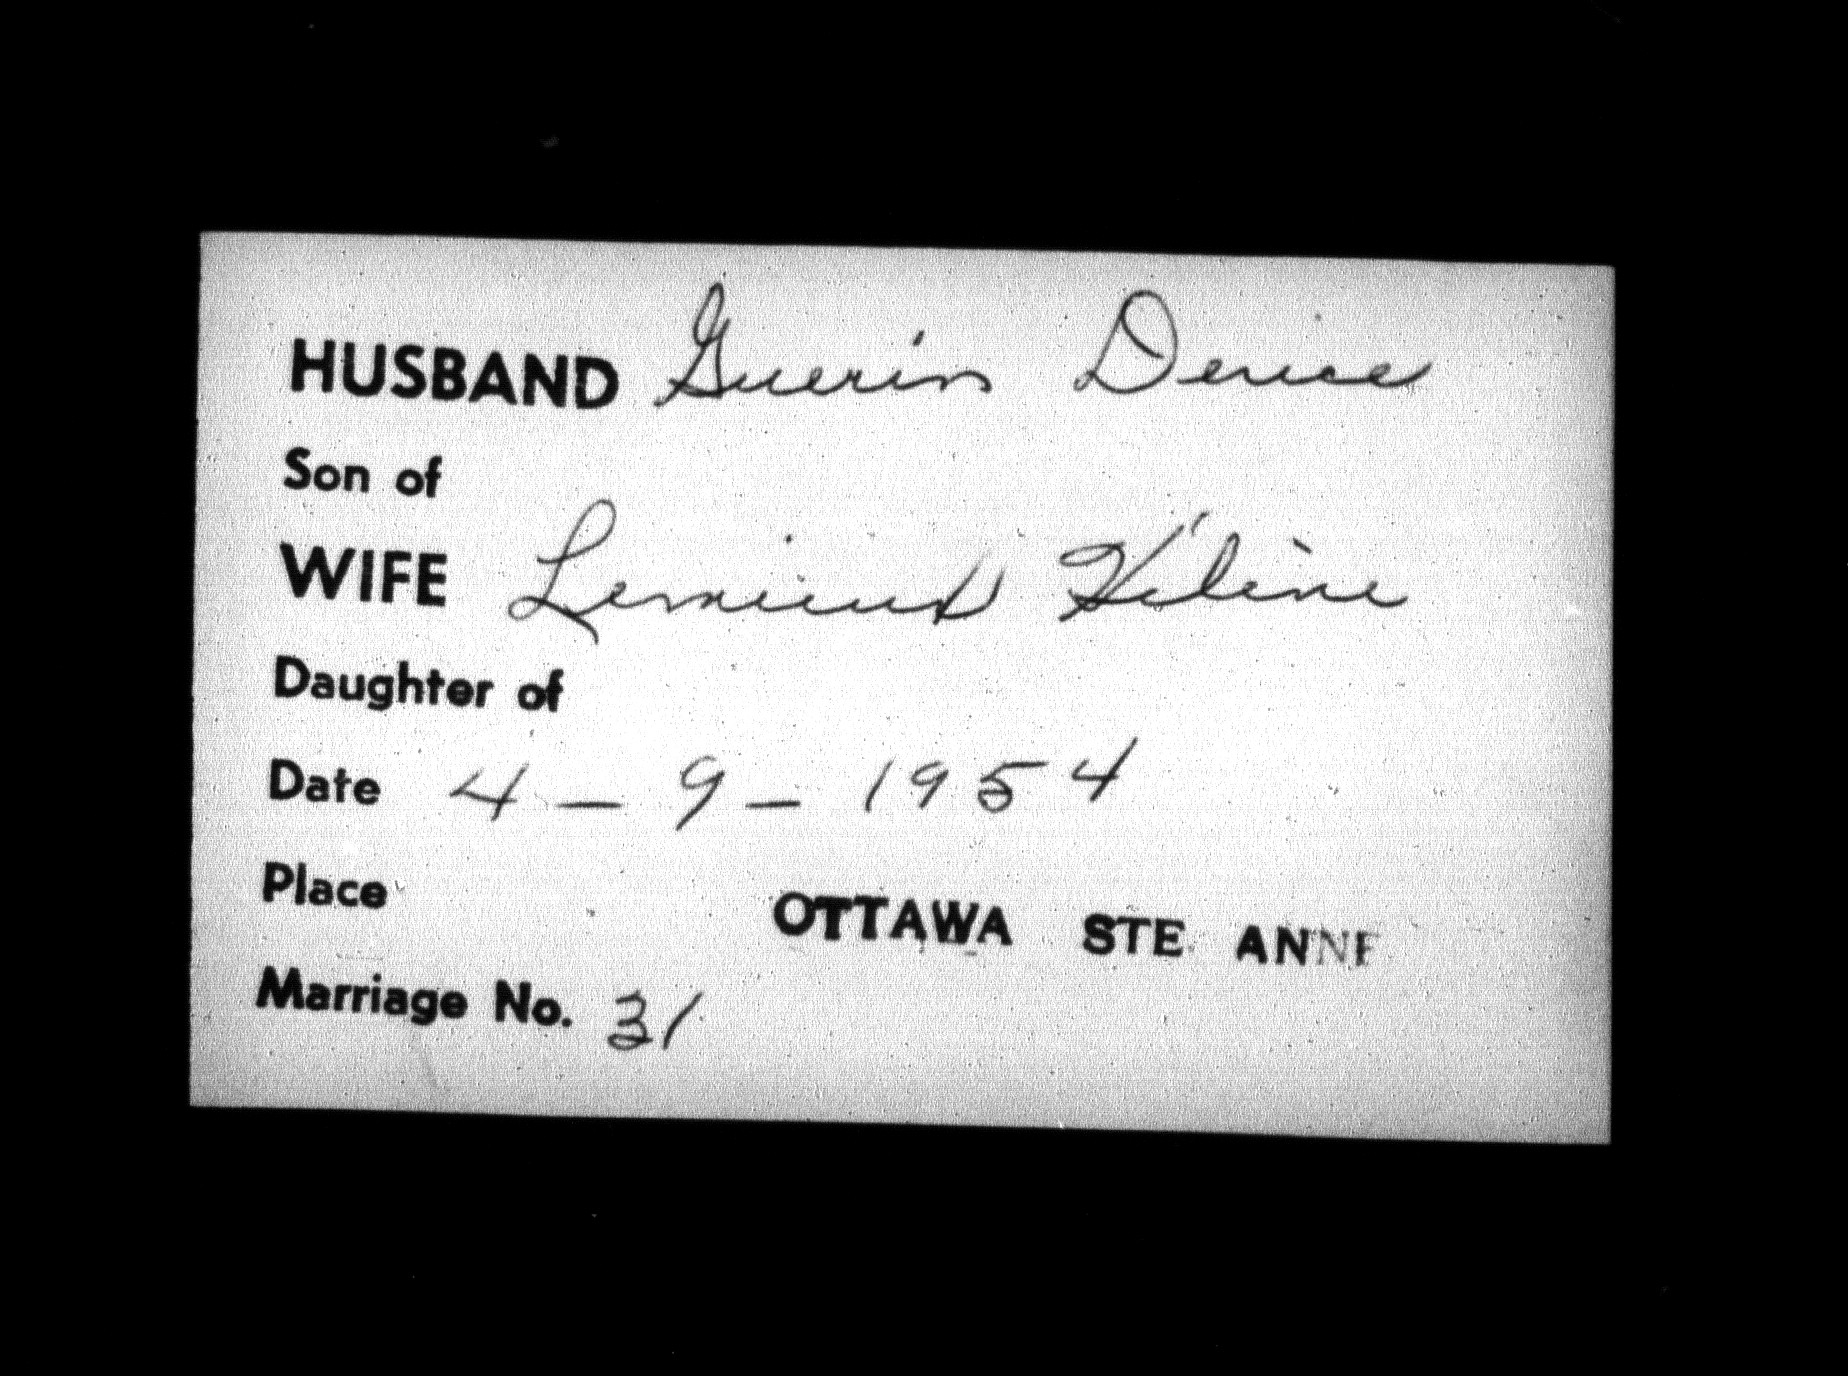 HUSBAND Guerin
Son of
WIFE Lemieux Hélène
Daughter of
Date 4 - 9 - 1954
Place OTTAWA STE ANNE
Marriage No. 31